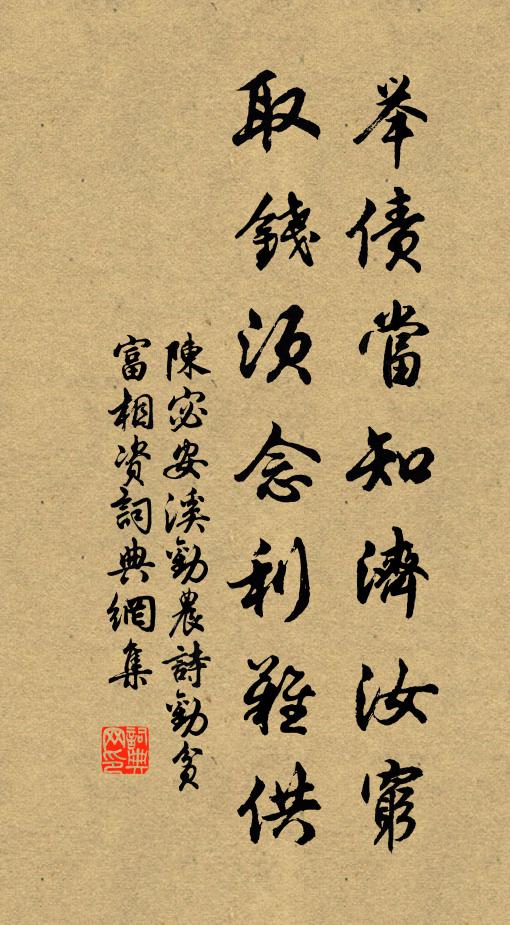 举债當知濟汝窮
取錢須念利難供
陳宓安溪勸農詩勸貧
富相资詞典網集
詞典
网印